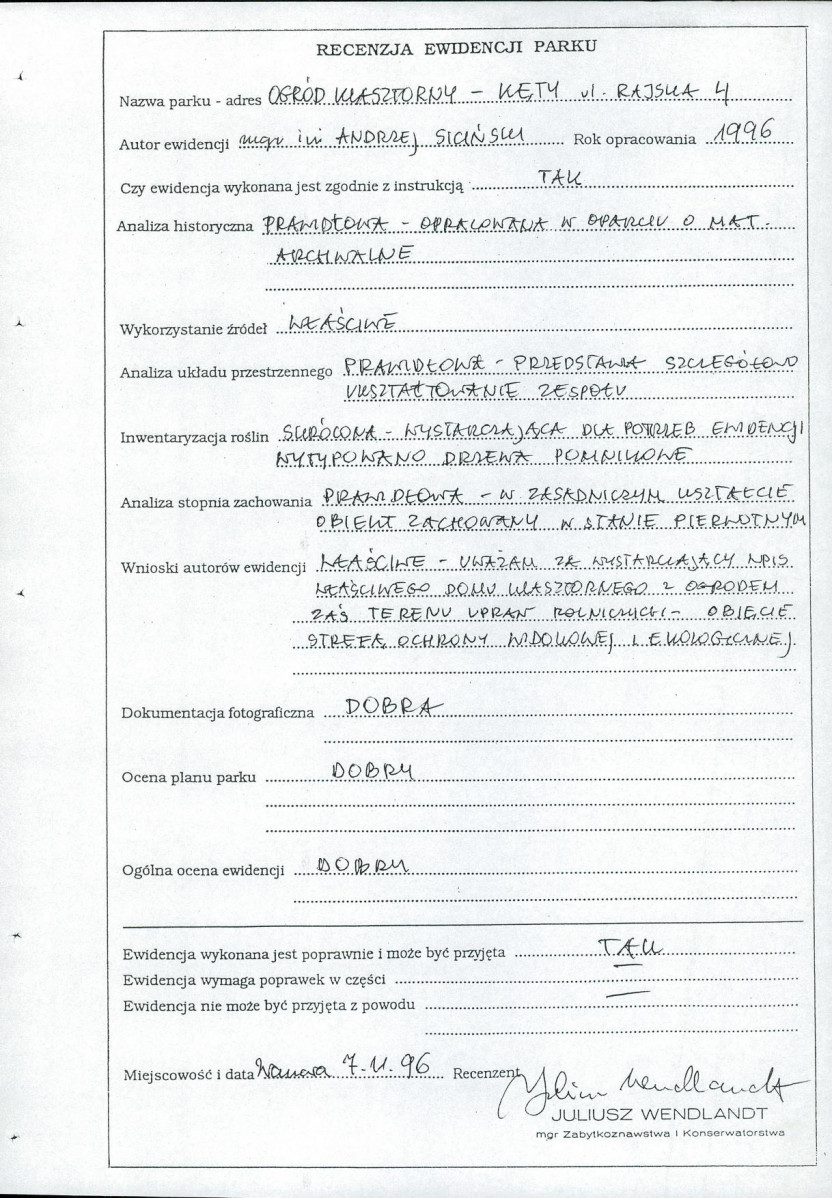 RECENZJA EWIDENCJI PARKU
Nazwa parku - adres OGRÓD KLASZTORNY – KĘTY ul. RAJSKA 4
Autor ewidencji mgr inż ANDRZEJ SICIŃSKI Rok opracowania 1996
Czy ewidencja wykonana jest zgodnie z instrukcją TAK
Analiza historyczna PRAWIDŁOWA - OPRACOWANA W OPARCIU O MAT.
ARCHWALNE
Wykorzystanie źródeł WŁAŚCIWE
Analiza układu przestrzennego PRAWIDŁOWA - PRZEDSTAWIA SZCZEGÓŁOWO
UKSZTAŁTOWANIE ZESPOŁU
Inwentaryzacja roślin SKRÓCONA - WYSTARCZAJĄCA DLA POTRZEB EWIDENCJI
WYTYPOWANO DRZEWA POMNIKOWE
Analiza stopnia zachowania PRAWIDŁOWA - W ZASADNICZYM KSZTAŁCIE
OBIEKT ZACHOWANY W STANIE PIERWOTNYM
Wnioski autorów ewidencji WŁAŚCIWE - UWAŻAM ZA WYSTARCZAJĄCY WPIS
WŁAŚCIWEGO DOMU KLASZTORNEGO Z OGRODEM
ZAŚ TERENU UPRAW ROLNICZYCH - OBJĘCIE
STREFĄ OCHRONY WIDOKOWEJ I EKOLOGICZNEJ
Dokumentacja fotograficzna DOBRA
Ocena planu parku DOBRY
Ogólna ocena ewidencji DOBRY
Ewidencja wykonana jest poprawnie i może być przyjęta TAK
Ewidencja wymaga poprawek w części —
Ewidencja nie może być przyjęta z powodu —
Miejscowość i data Warszawa 7.11.96 Recenzent Juliusz Wendlandt
JULIUSZ WENDLANDT
mgr Zabytkoznawstwa i Konserwatorstwa